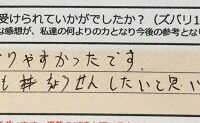 受けられていかがでしたか？（ズバリ1
な感想が、私達の何よりの力となり今後の参考となり
りやすかったです。
も ちょうせんしたいと思い